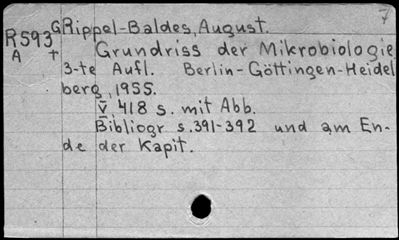 7
R593 G Rippel-Baldes, August.
A + Grundriss der Mikrobiologie
3-te Aufl. Berlin-Göttingen-Heidel
berg, 1955.
V, 418 s. mit Abb.
Bibliogr s.391-392 und am En-
de der Kapit.